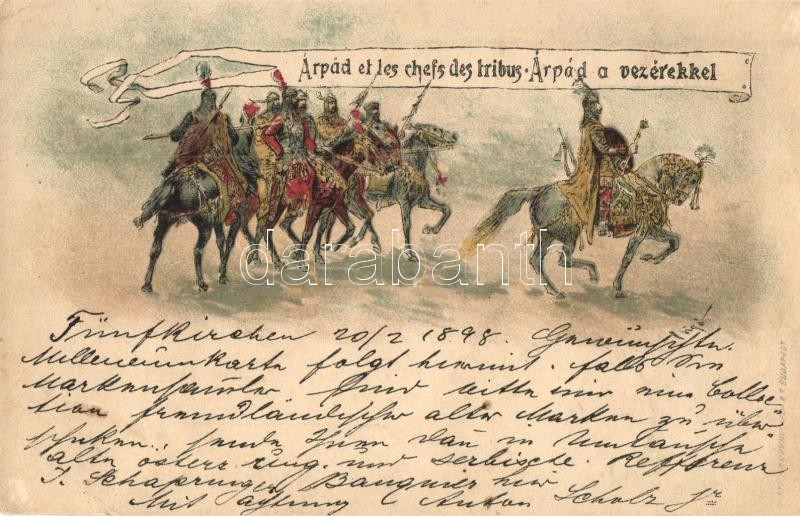 Árpád et les chefs des tribus · Árpád a vezérekkel
darabanth
Fünfkirchen 20/2 1898. Gewünschte
Milleniumkarte folgt hiemit. falls Sie
Markensamler sind bitte mir eine Collec-
tion fremdländischer alter Marken zu über-
schicken, sende Ihnen dan in Umtausch
alte österr. ung. und serbische. Refferenz
J. Schapringer Banquier hier
Mit achtung Anton Scholz jr
BUDAPEST